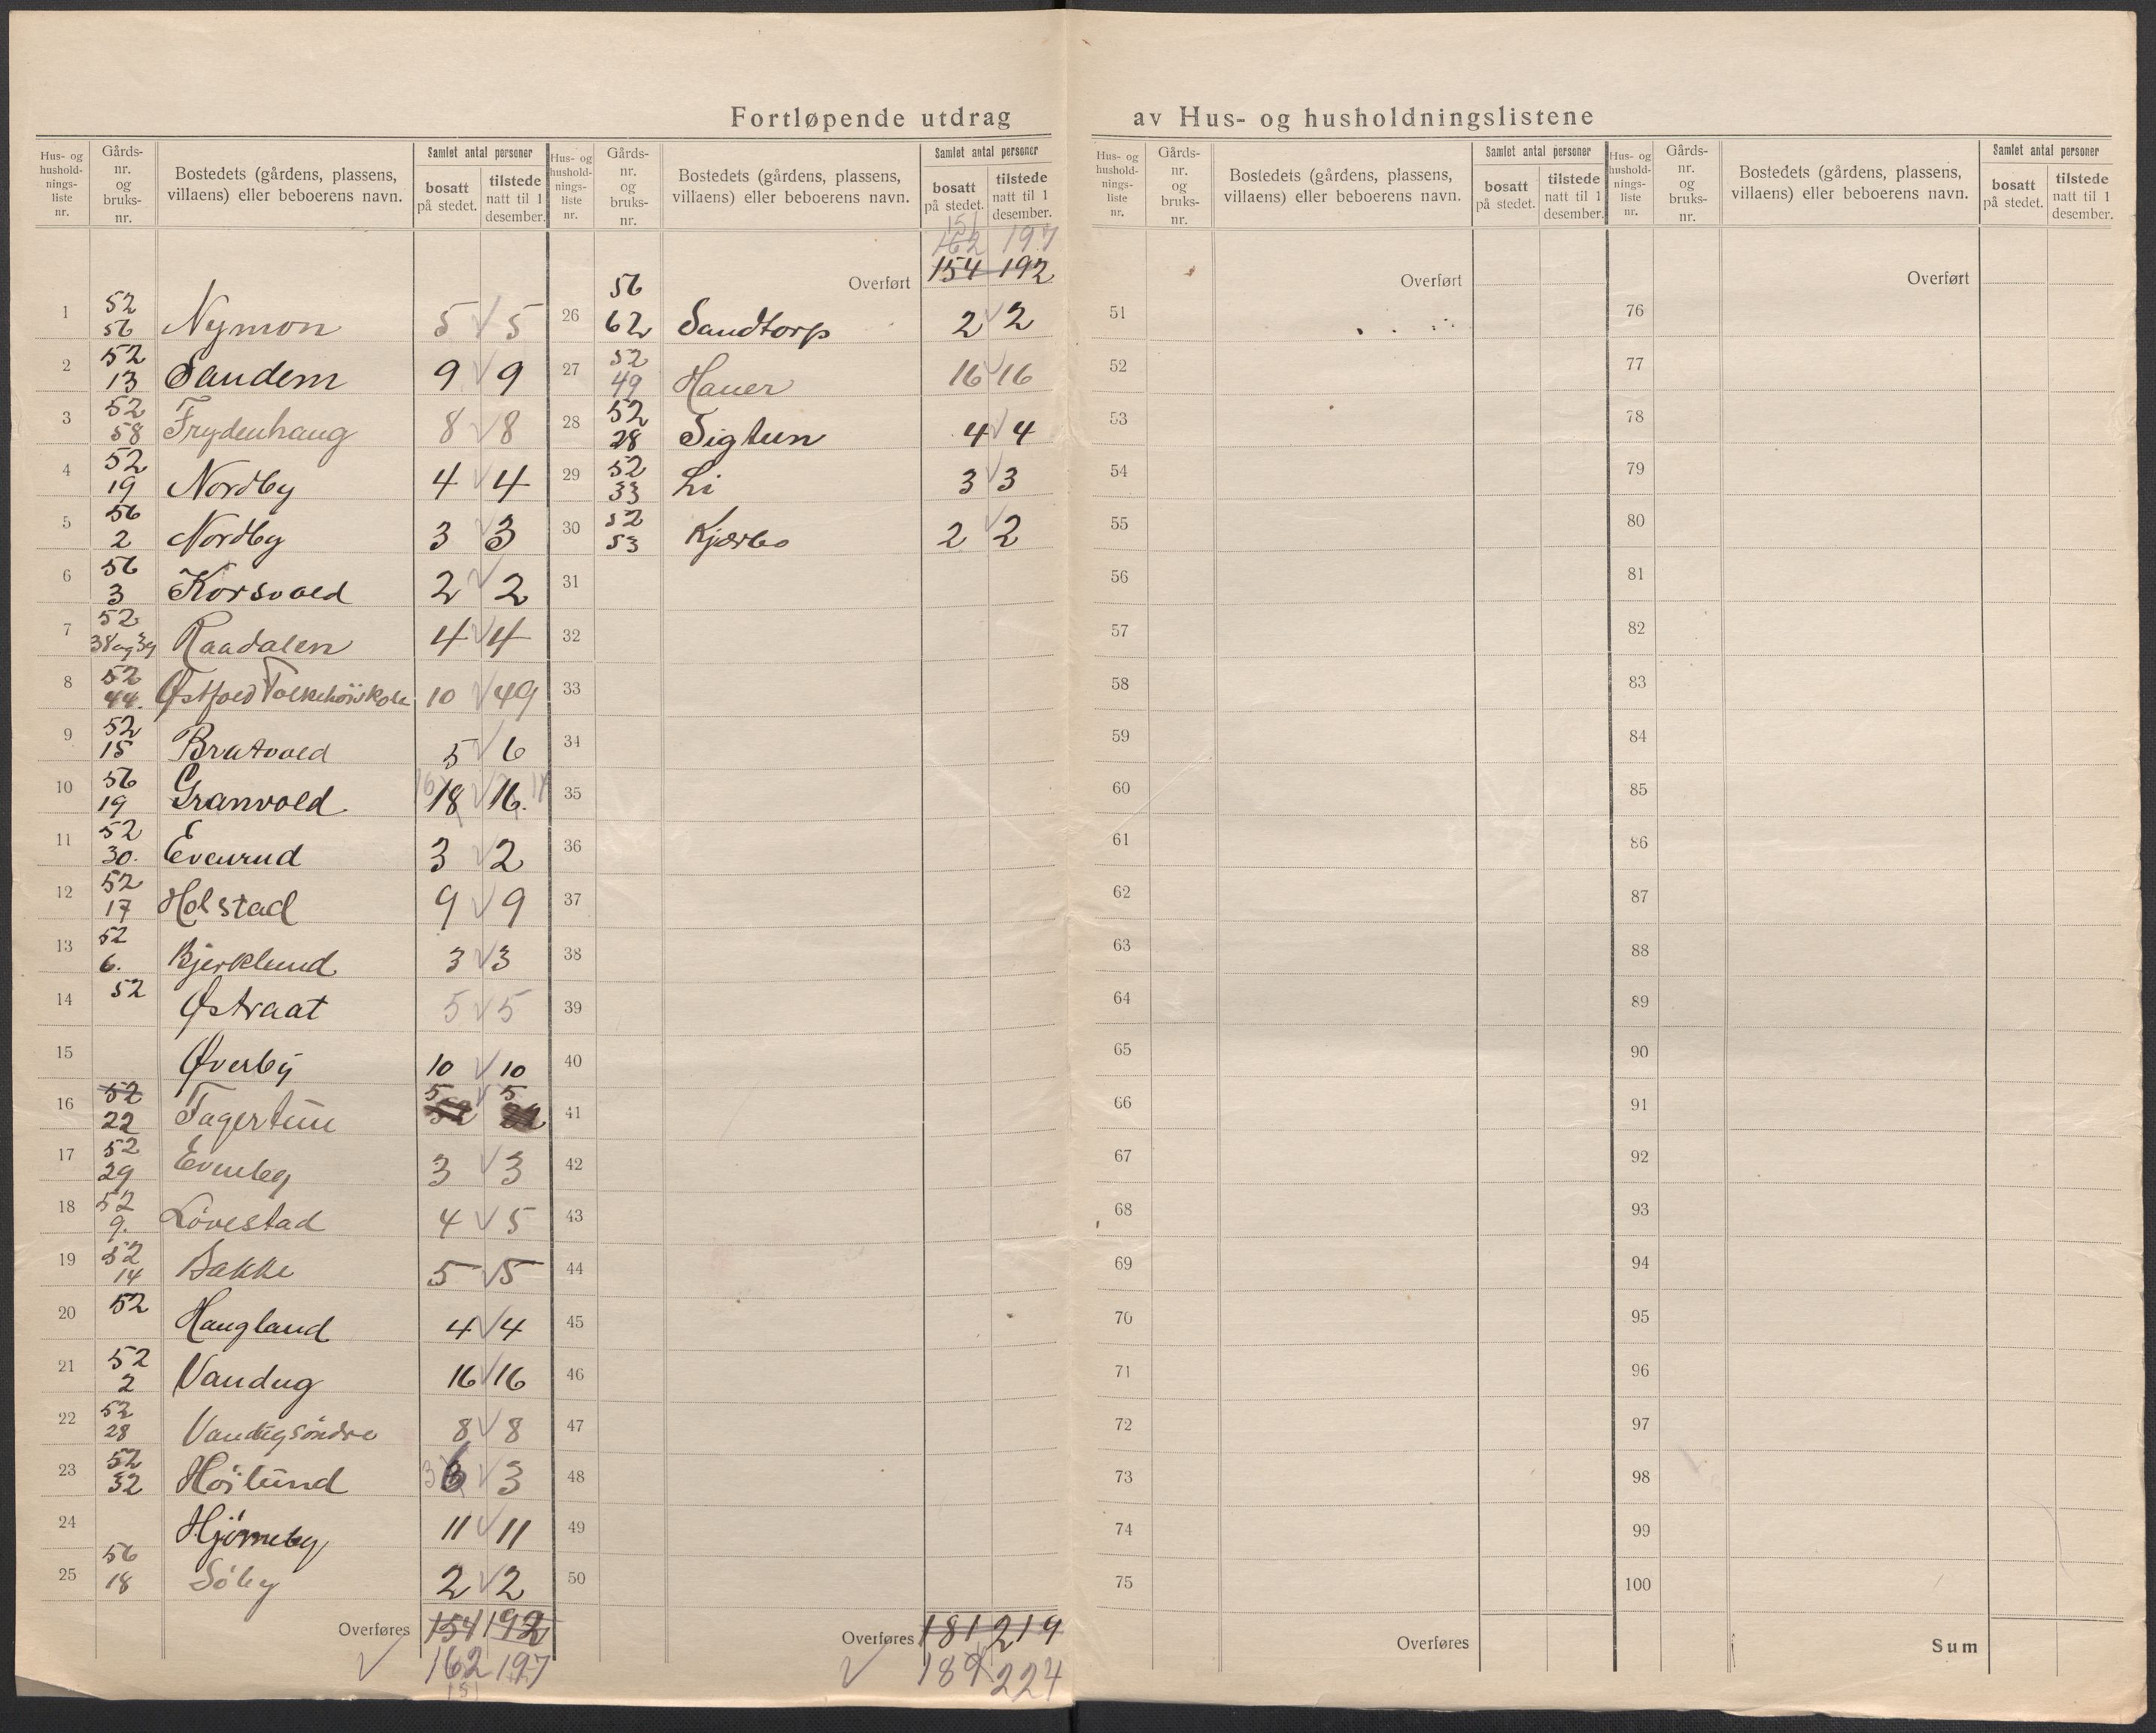 Fortløpende utdrag av Hus- og husholdningslistene
Hus- og hushold-nings-liste nr. Gårds-nr. og bruks-nr. Bostedets (gårdens, plassens, villaens) eller beboerens navn. Samlet antal personer bosatt på stedet. tilstede natt til 1 desember.
1 52 56 Nymon 5 5
2 52 13 Sandem 9 9
3 52 58 Frydenhaug 8 8
4 52 19 Nordby 4 4
5 56 2 Nordby 3 3
6 56 3 Korsvold 2 2
7 52 38 og 39 Raadalen 4 4
8 52 44. Østfold Folkehöiskole 10 49
9 52 15 Bratvold 5 6
10 56 19 Granvold 18 16. 17
11 52 30. Evenrud 3 2
12 52 17 Holstad 9 9
13 52 6. Bjerklund 3 3
14 52 Østraat 5 5
15 Øverby 10 10
16 52 22 Fagertun 5 5
17 52 29 Evenby 3 3
18 52 9. Lövestad 4 5
19 52 14 Bakke 5 5
20 52 Haugland 4 4
21 52 2 Vandug 16 16
22 52 28 Vandug söndre 8 8
23 52 32 Höilund 3 3
24 Hjörneby 11 11
25 56 18 Söby 2 2
Overføres 154 192
162 197
151
Hus- og hushold-nings-liste nr. Gårds-nr. og bruks-nr. Bostedets (gårdens, plassens, villaens) eller beboerens navn. Samlet antal personer bosatt på stedet. tilstede natt til 1 desember.
151
162 197
Overført 154 192
26 56 62 Sandtorp 2 2
27 52 49 Hauer 16 16
28 52 28 Sigtun 4 4
29 52 33 Li 3 3
30 52 53 Kjærbo 2 2
31
32
33
34
35
36
37
38
39
40
41
42
43
44
45
46
47
48
49
50
Overføres 181 219
189 224
Hus- og hushold-nings-liste nr. Gårds-nr. og bruks-nr. Bostedets (gårdens, plassens, villaens) eller beboerens navn. Samlet antal personer bosatt på stedet. tilstede natt til 1 desember.
Overført
51
52
53
54
55
56
57
58
59
60
61
62
63
64
65
66
67
68
69
70
71
72
73
74
75
Overføres
Hus- og hushold-nings-liste nr. Gårds-nr. og bruks-nr. Bostedets (gårdens, plassens, villaens) eller beboerens navn. Samlet antal personer bosatt på stedet. tilstede natt til 1 desember.
Overført
76
77
78
79
80
81
82
83
84
85
86
87
88
89
90
91
92
93
94
95
96
97
98
99
100
Sum